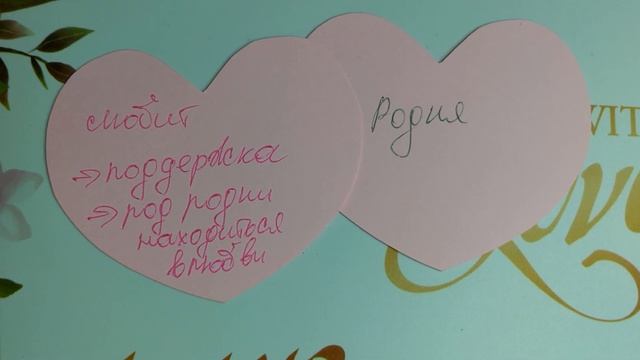 любит
→ поддержка
→ род родии
находиться
в любви
Родия
VIT